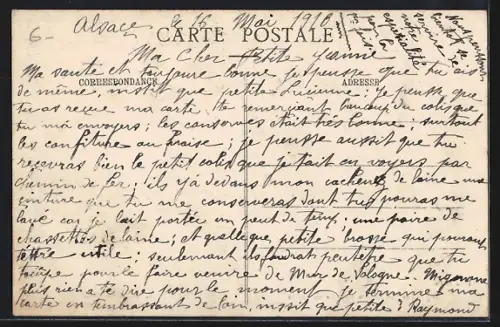 6-
Alsace le 16 Mai 1916
CARTE POSTALE
Ma Cher Petite Jeanne
Ma santé et toujours bonne je pensse que tu ais
CORRESPONDANCE ADRESSE
de même, inssit que petite Lucienne; Je pensse que
tu as reçue ma carte te remerciant beaucoup du colis que
tu m'a envoyers; les consernes était très bonne; surtout
les confiture au fraise; je pensse aussit que tu
recevras bien le petit colis que je t'ait en voyers par
chemin de fer; ils y'a dedans mon cachenez de laine une
ceinture que tu me conserveras dont tu pouras me
lavé car je l'ait portée un peut de temp; une paire de
chaussettes de laine; et quelque petite brosse qui pouront
t'être utile; seulement ils faudrat peutêtre que tu
pour le faire venire de Mur de Sologne. Mignonne
plus rien a te dire pour le moment je termine ma
carte en t'embrassant de loin, inssit que petite d Raymond